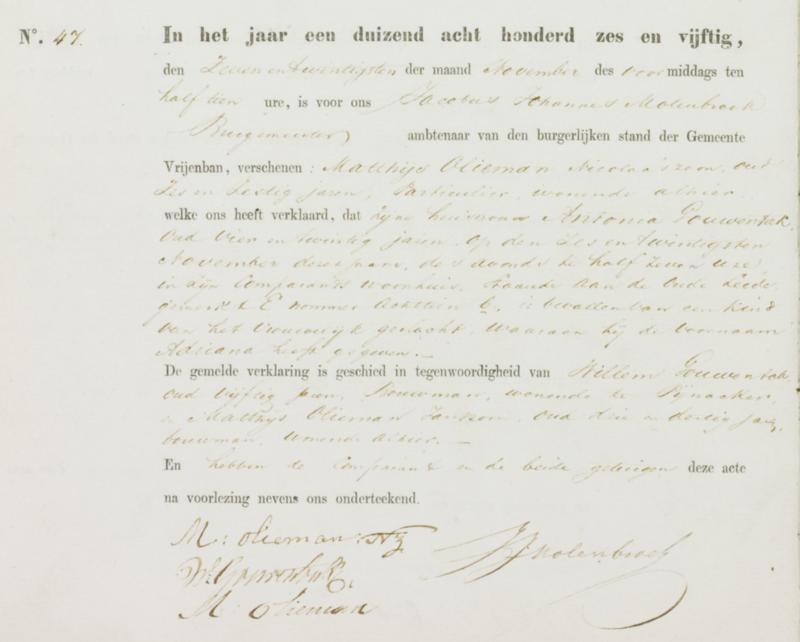 No. 47. In het jaar een duizend acht honderd zes en vijftig,
den Zeven en twentigsten der maand November des voor middags ten
half tien ure, is voor ons Jacobus Johannes Molenbroek
Burgemeester ambtenaar van den burgerlijken stand der Gemeente
Vrijenban, verschenen: Matthijs Olieman Nicolaaszoon, oud
Zes en Zestig jaren, Particulier, wonende alhier
welke ons heeft verklaard, dat zijne huisvrouw Antonia Gouwentak,
oud vier en twintig jaren, op den Zes en twentigsten
November dezes jaars, des avonds te half zeven ure,
in zijn Comparants woonhuis, staande aan de Oude Leede,
gemerkt E nommer Achttien b, is bevallen van een kind
van het vrouwelijk geslacht, waaraan hij de voornaam
Adriana heeft gegeven.—
De gemelde verklaring is geschied in tegenwoordigheid van Willem Gouwentak,
oud vijftig jaren, Bouwman, wonende te Pijnacker,
en Matthijs Olieman Janszoon, oud drie en dertig jaren,
bouwman, wonende alhier.—
En hebben de Comparant en de beide getuigen deze acte
na voorlezing nevens ons onderteekend.
M: olieman: Nz
JJMolenbroek
W: Gouwentak.
M: olieman